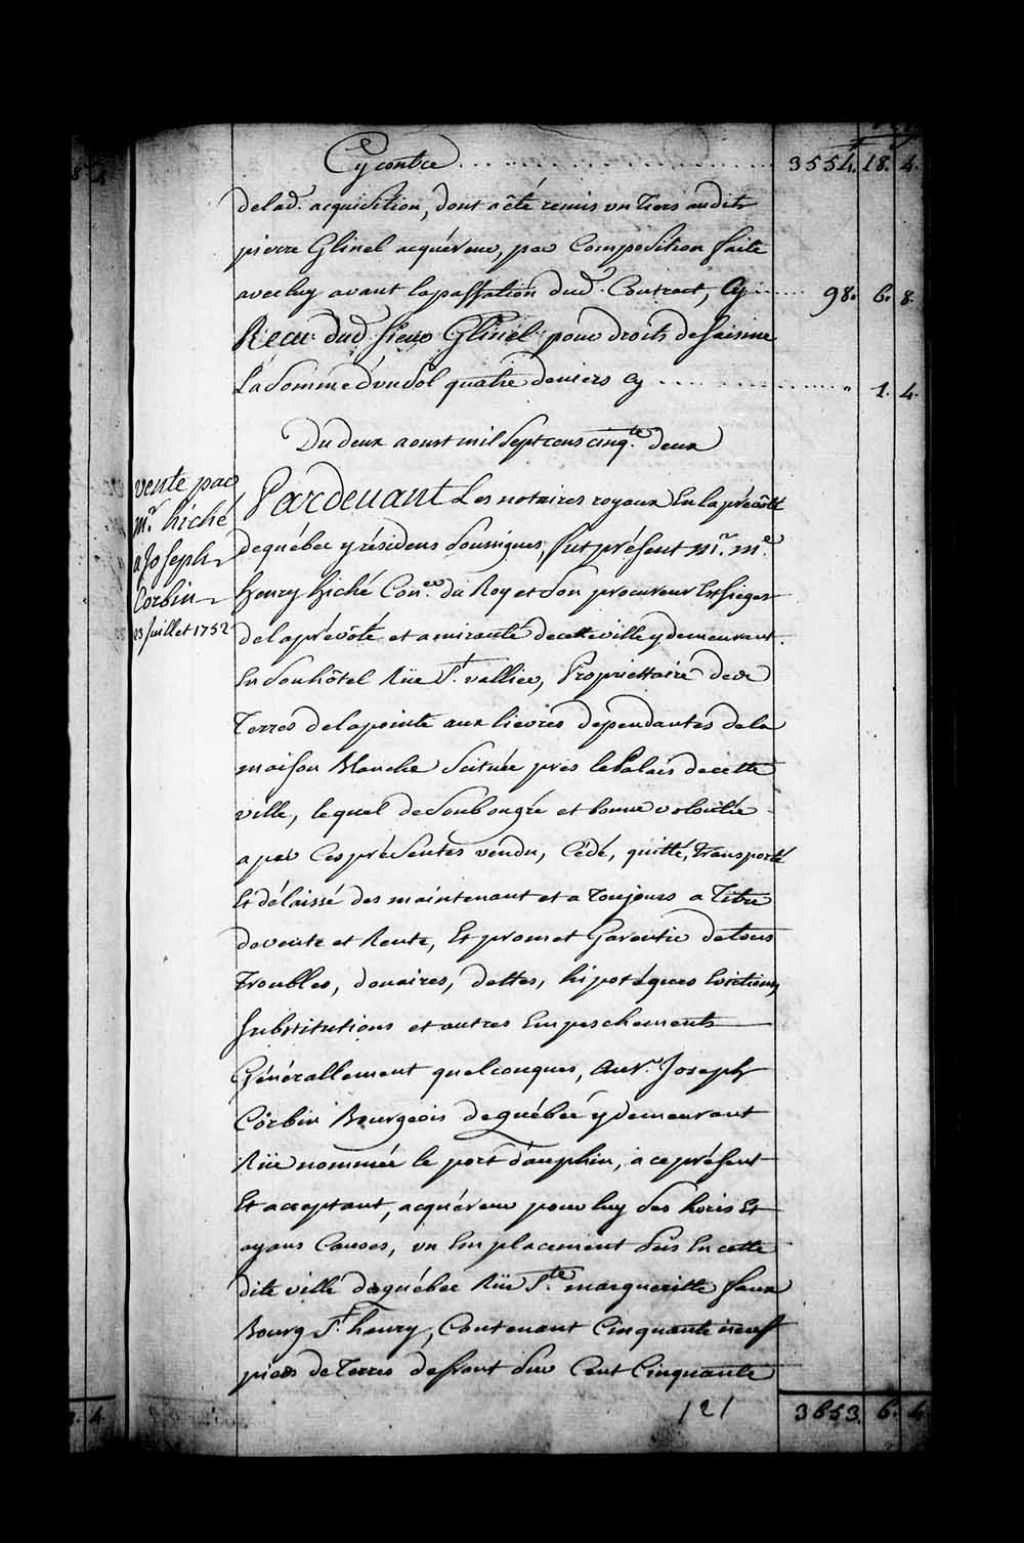 Cy contre .......... 3554. 18. 4.
de lad. acquisition, dont a été remis un Tiers audit
pierre Glinel acquéreur, par Composition faite
avec luy avant la passation dud. Contract, Cy ...... 98. 6. 8.
Recu dud. sieur Glinel pour droits de saisine
La Somme d'un Sol quatre deniers cy .......... " 1. 4.
Du deux aoust mil Sept cens cinq.te deux
vente par
mr. hiché
a Joseph
Corbin
23 Juillet 1752
Pardevant Les notaires royaux En la prévôté
de québec y résidens soussignes, fut présent Mr. me.
henry hiché Con.er du Roy et son procureur Es sieges
de la prévôté et amirauté de cette ville y demeurant
En son hôtel Rüe St. vallier, Propriettaire des
Terres de la pointe aux lievres dependantes de la
maison Blanche Scituée pres le Palais de cette
ville, lequel de son bon gré et bonne volonté
a par Ces présentes vendu, Cédé, quitté, transporté
Et délaissé des maintenant et a Toujours a Titre
de vente et Rente, Et promet Garentir de tous
Troubles, douaires, dettes, hipotéques Evictions,
substitutions et autres Empeschements
Générallement quelconques, au Sr. Joseph
Corbin Bourgeois de québec y demeurant
Rüe nommée le port dauphin, a ce présent
Et acceptant, acquéreur pour luy ses hoirs Et
ayans Causes, un Emplacement sis En cette
dite ville de québec Rüe Ste. margueritte faux
Bourg St. henry, Contenant Cinquante neuf
pieds de Terres de front sur Cent Cinquante
121
3653. 6. 4.